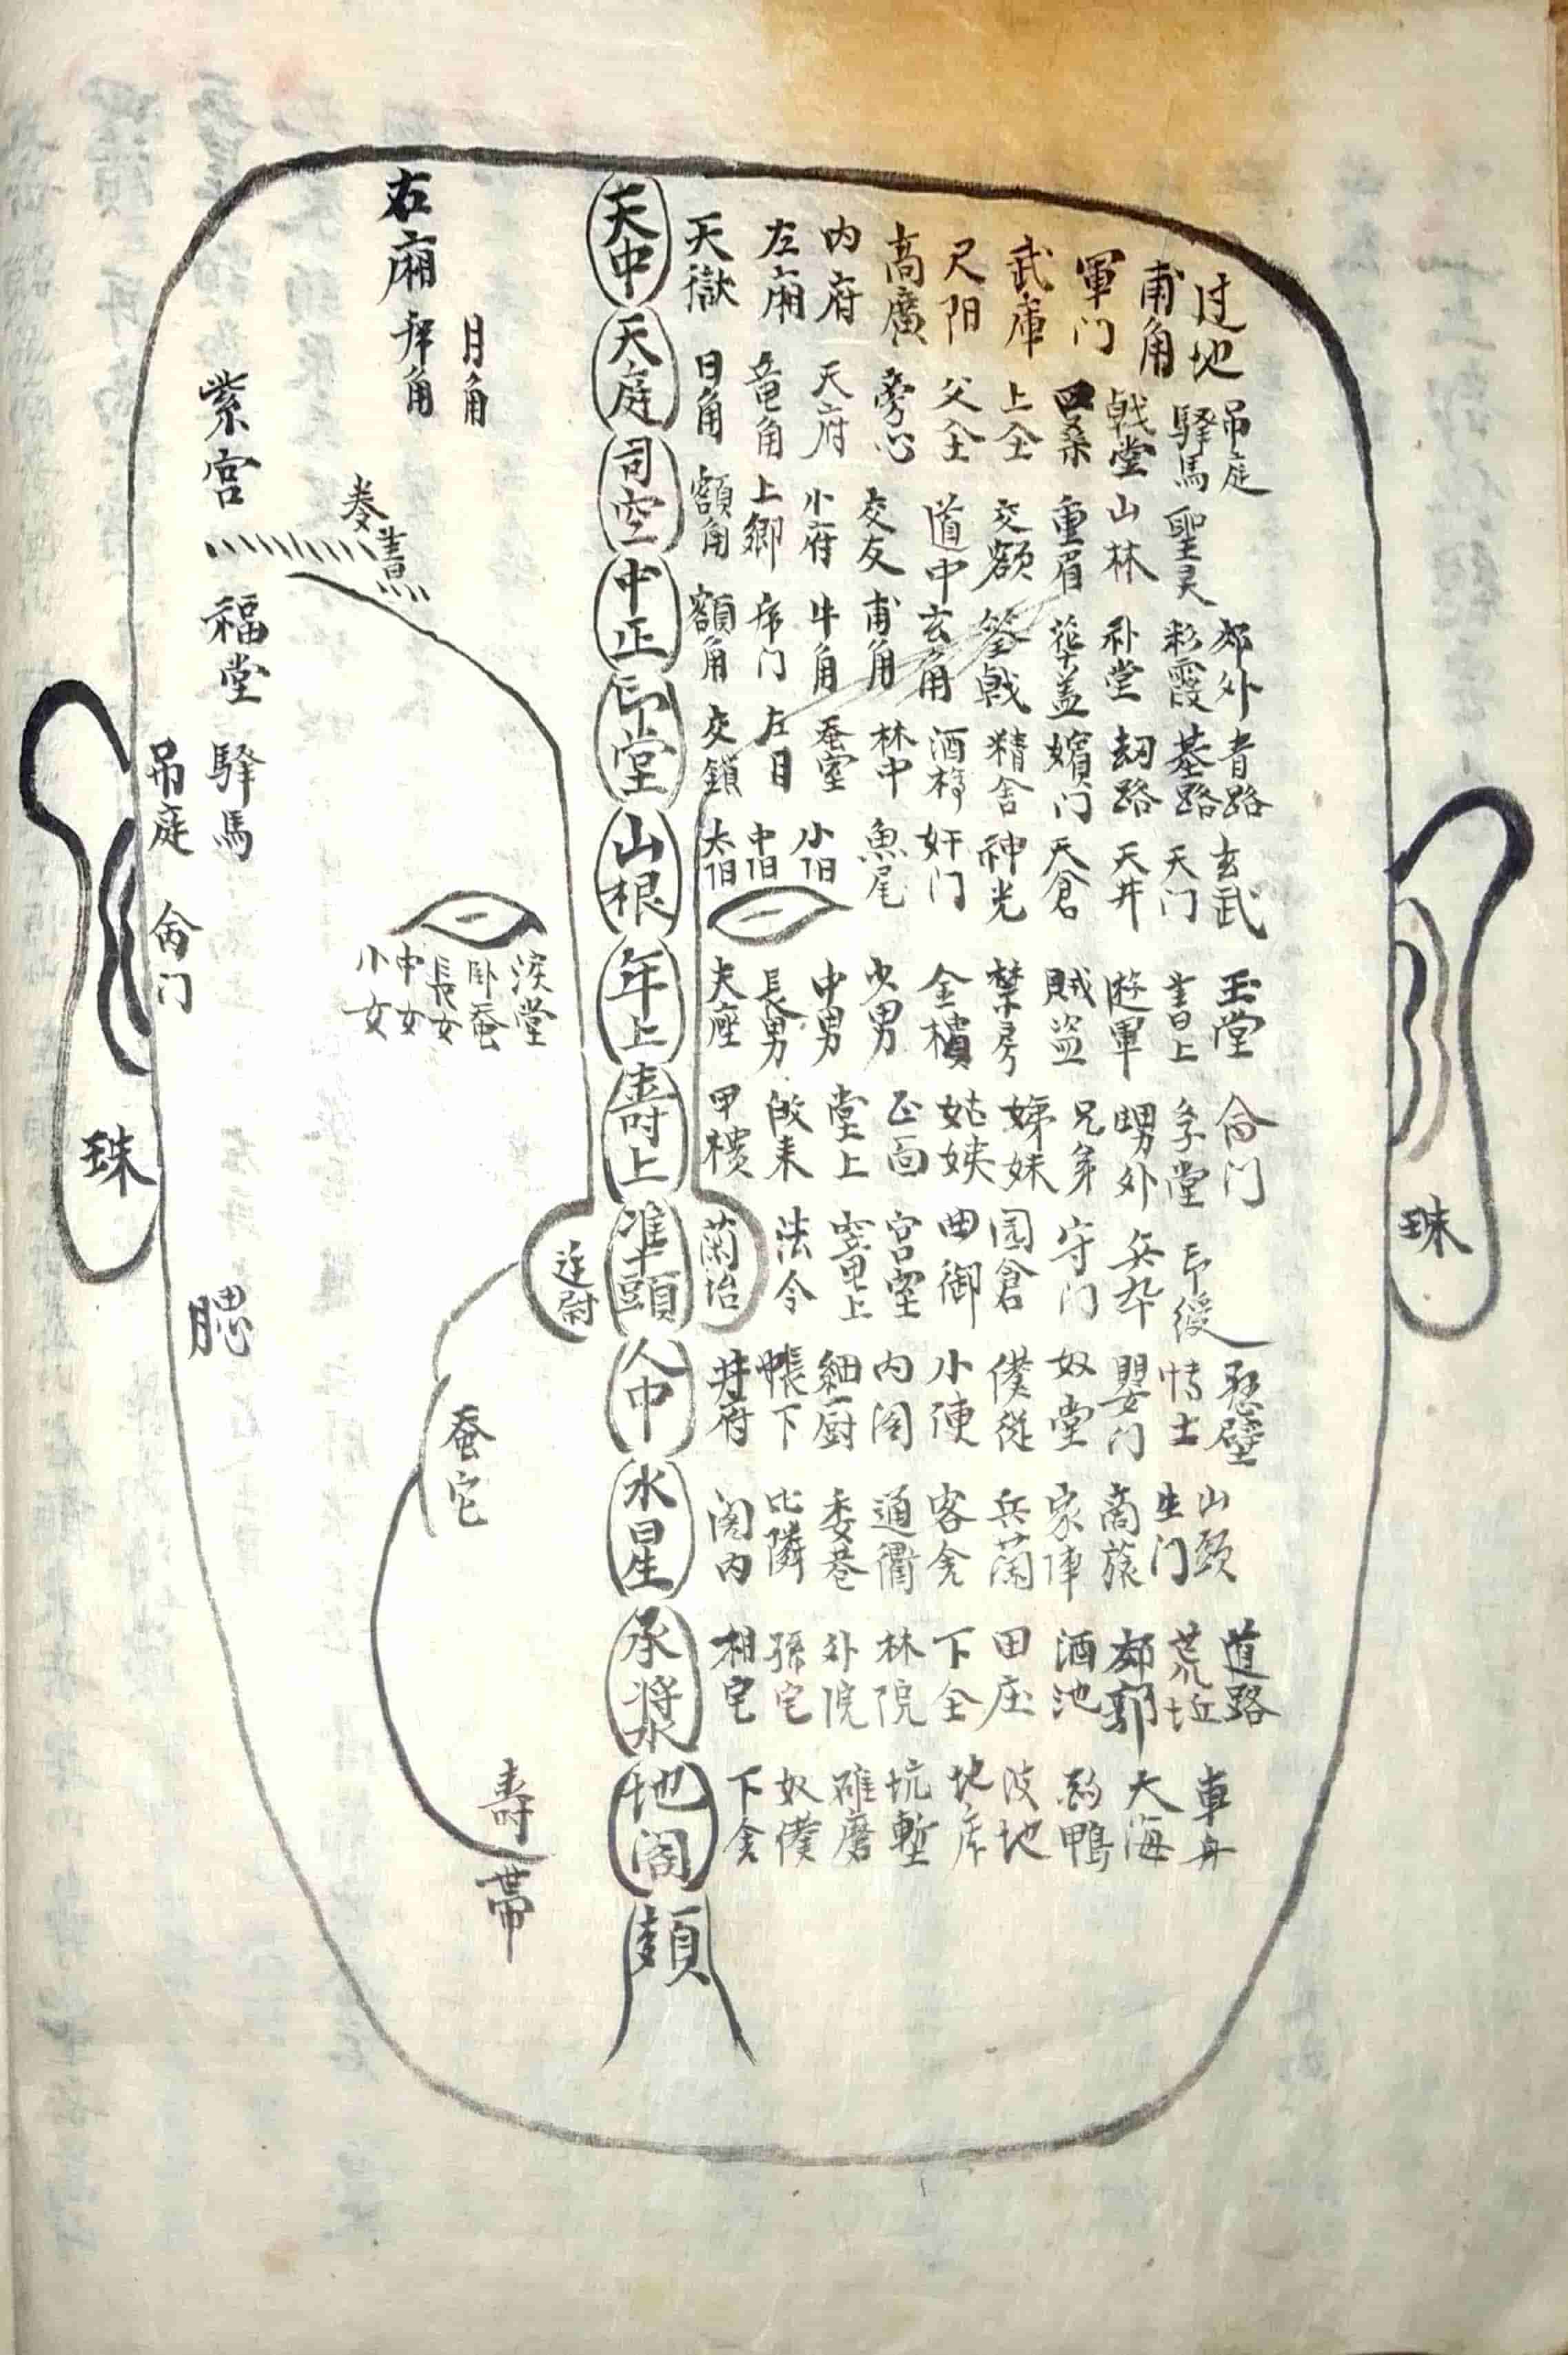 天中 天獄 左廂 内府 高廣 尺阳 武庫 軍门 甫角 过地
天庭 日角 竜角 天府 旁心 父仝 上仝 四桑 戟堂 驿馬 吊庭
司空 額角 上卿 小府 交友 道中 交额 重眉 山林 聖灵
中正 額角 序门 牛角 甫角 玄角 荃戟 華盖 补堂 彩霞 郊外
印堂 交鎖 左目 蚕室 林中 酒樽 精舍 嬪门 刼路 基路 青路
山根 太阳 中阳 小阳 魚尾 奸门 神光 天倉 天井 天门 玄武
年上 夫座 長男 中男 少男 金樻 禁房 賊盗 遊軍 書上 玉堂
壽上 甲樻 皈来 堂上 正面 姑姨 姊妹 兄弟 甥外 学堂 侖门
準頭 蘭坮 法令 竈上 宫室 典御 园倉 守门 兵卒 印绶
人中 井府 帳下 細厨 内阁 小使 僕從 奴堂 嬰门 博士 懸壁
水星 阁内 比隣 委巷 通衢 客舍 兵蘭 家庫 商旅 生门 山頭
承漿 相宅 孫宅 外院 林院 下仝 田庄 酒池 郊郭 荒坵 道路
地阁 下舍 奴僕 碓磨 坑塹 地庫 波地 鹅鴨 大海 車舟
頦
右廂
月角
紫宫
福堂
驿馬
吊庭
侖门
淚堂
卧蚕
長女
中女
小女
廷尉
蚕宅
壽帶
腮
珠
珠